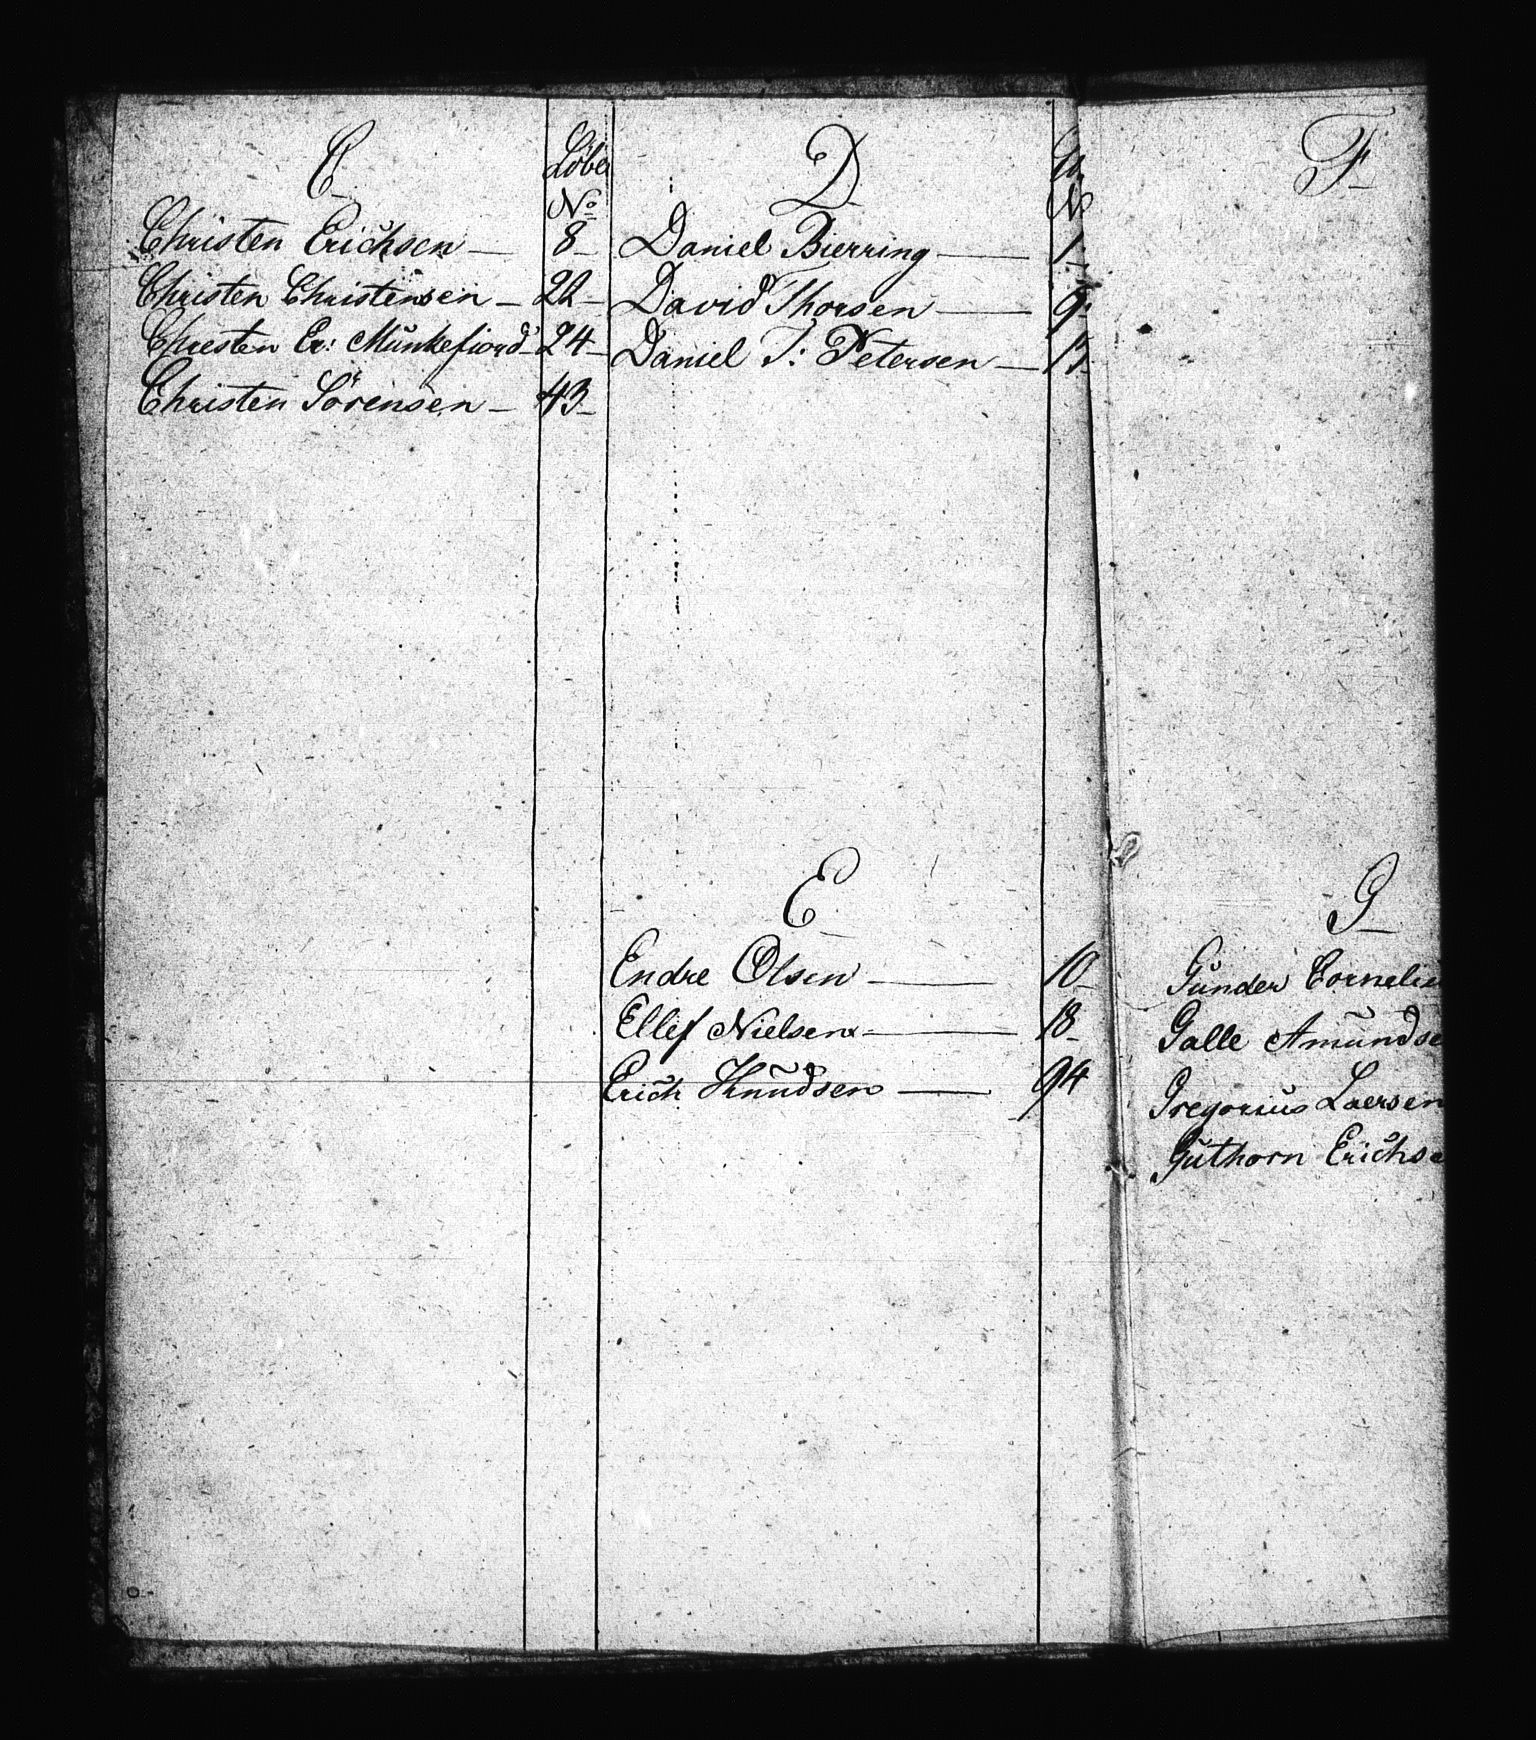 C
Löbe
No
Christen Erichsen — 8
Christen Christensen — 22
Christen Er: Munkefiord — 24
Christen Sörensen — 43
D
No
Daniel Bierring — 1
David Thorsen — 9
Daniel T: Petersen —
E
Endre Olsen — 10
Ellef Nielsen — 18
Erich Knudsen — 94
F
G
Gunder Corneliu
Galle Amundse
Gregorius Laersen
Guthorn Erichse